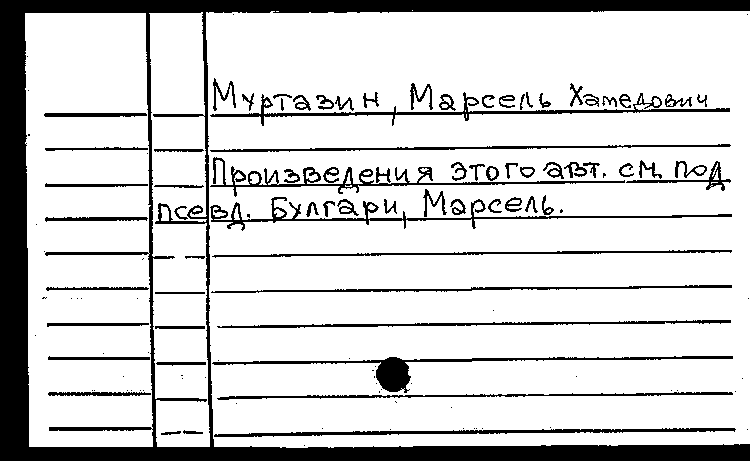 Муртазин, Марсель Хамедович
Произведения этого авт. см. под
псевд. Булгари, Марсель.